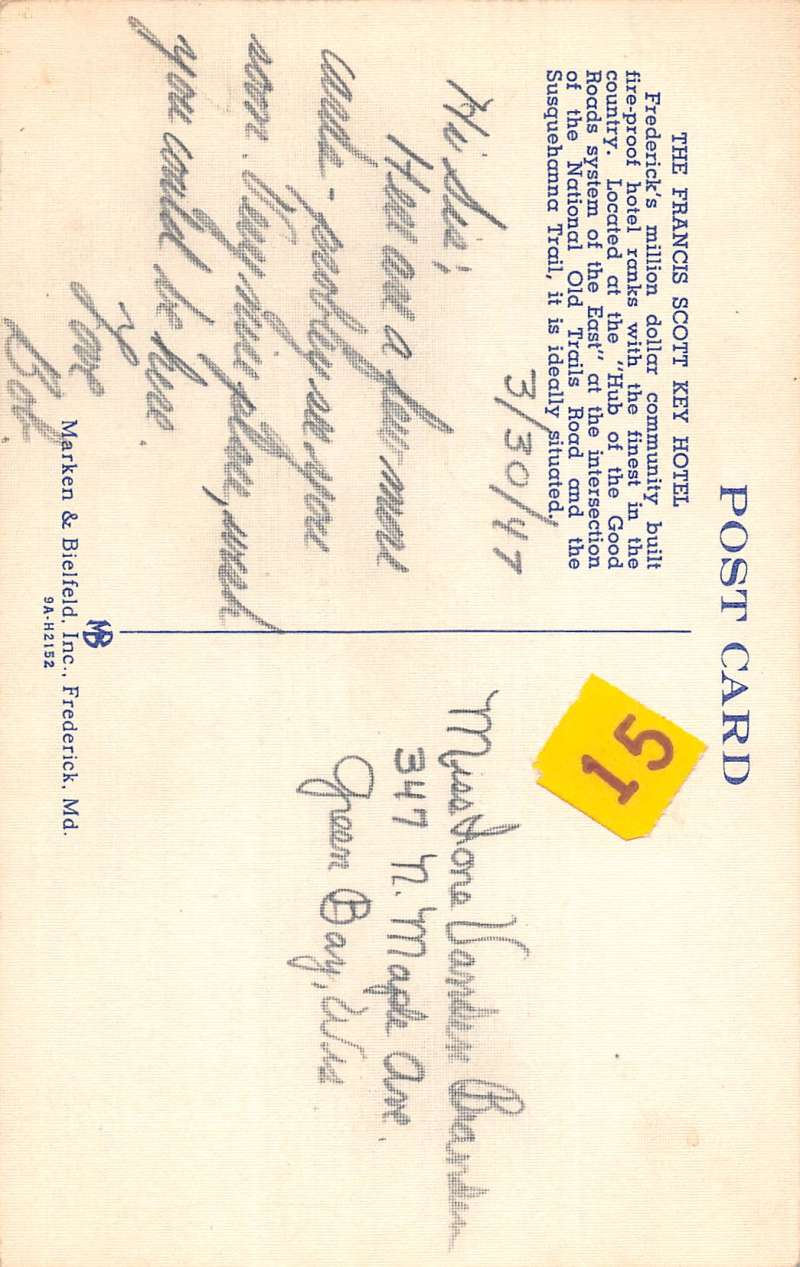 POST CARD
THE FRANCIS SCOTT KEY HOTEL
Frederick's million dollar community built
fire-proof hotel ranks with the finest in the
country. Located at the "Hub of the Good
Roads system of the East" at the intersection
of the National Old Trails Road and the
Susquehanna Trail, it is ideally situated.
3/30/47
Hi Sis;
Here are a few more
cards - probly see you
soon. Very nice place, wish
you could be here.
Love
Bob
15
Miss Iona Vanden Branden
347 N. Maple Ave.
Green Bay, Wis
MB
Marken & Bielfeld, Inc., Frederick, Md.
9A-H2152